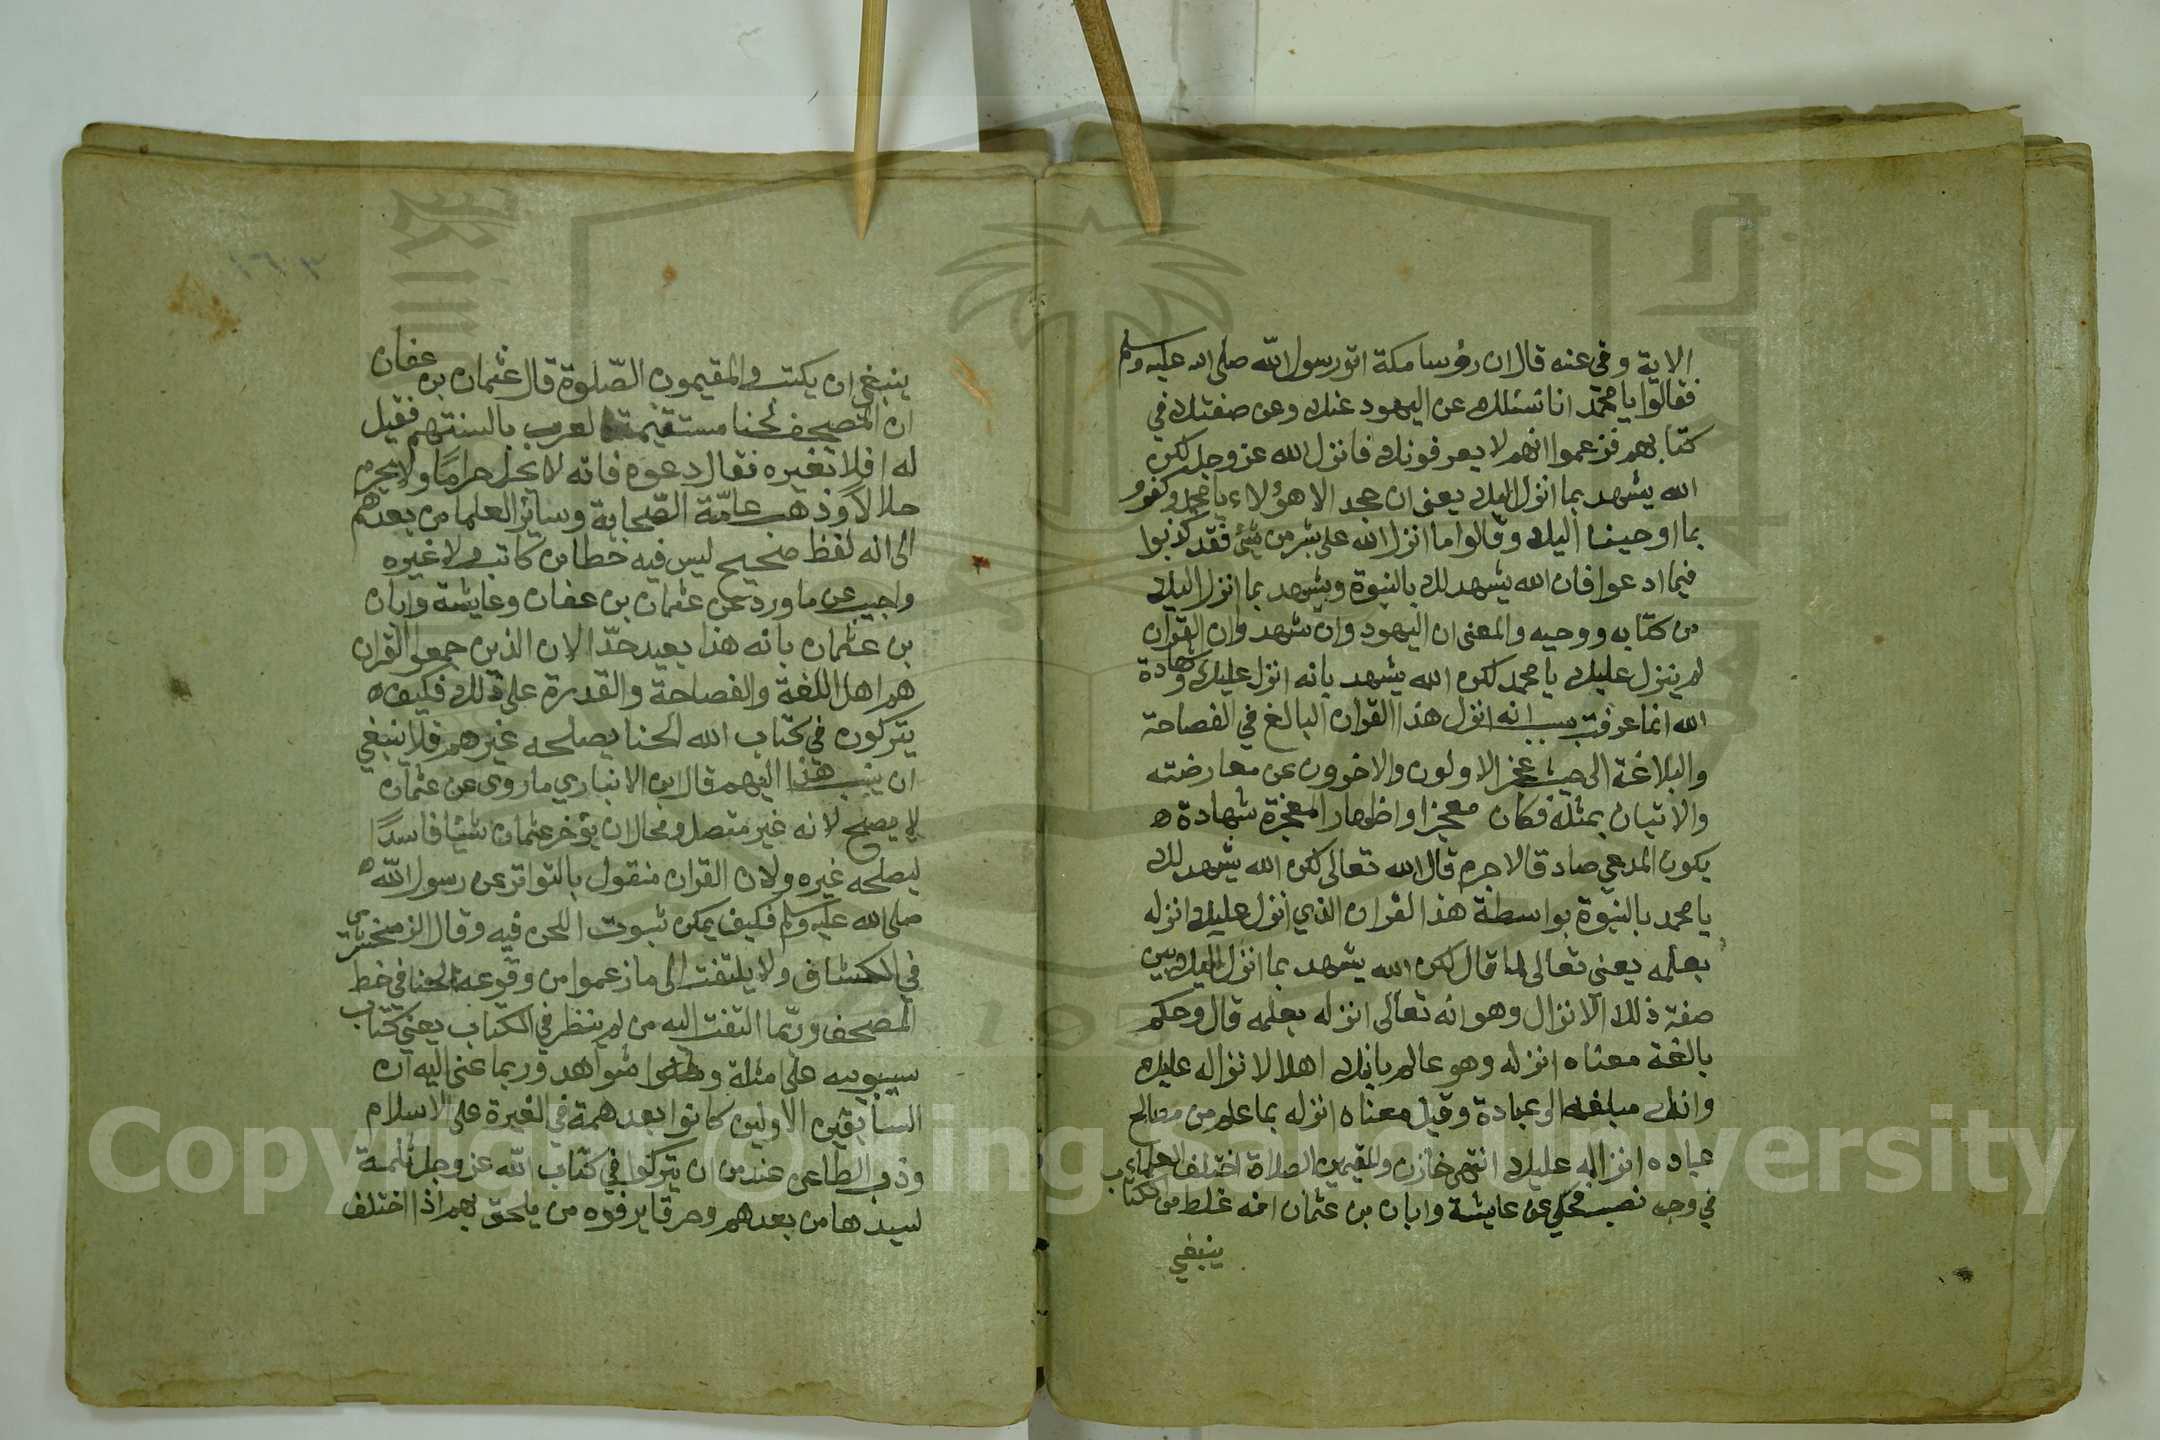 الاية وفي عنه قال ان رؤسا مكة اتو رسول الله صلى الله عليه وسلم
فقالوا يا محمد انا نسئلك عن اليهود عنك وعن صفتك في
كتابهم فزعموا انهم لا يعرفونك فانزل الله عز وجل لكن
الله يشهد بما انزل اليك يعني ان جحد الا هؤلاء يا محمد وكفرو
بما اوحينا اليك وقالوا ما انزل الله على بشر من شئ فقد كذبوا
فيما ادعوا فان الله يشهد لك بالنبوة ويشهد بما انزل اليك
من كتابه ووحيه والمعنى ان اليهود وان شهد وان القران
لم ينزل عليك يا محمد لكن الله يشهد بانه انزل عليك وشهادة
الله انما عرفت بسبب انه انزل هذا القران البالغ في الفصاحة
والبلاغة الى حيث عجز الاولون والاخرون عن معارضته
والاتيان بمثله فكان معجزا واظهار المعجزة شهادة ه
يكون المدعي صادقا لاجرم قال الله تعالى لكن الله يشهد لك
يا محمد بالنبوة بواسطة هذا القران الذي انزل عليك انزله
بعلمه يعني تعالى لما قال لكن الله يشهد بما انزل اليك وبين
صفة ذلك الانزال وهو انه تعالى انزله بعلمه قال وحكم
بالغة معناه انزله وهو عالم بانك اهلا لانزاله عليك
وانك مبلغه الى عبادة وقيل معناه انزله بما علم من مصالح
عباده انزاله عليك انتهى خازن والمقيمين الصلاة اختلف العلماء
في وجه نصبه فحكي عن عايشة وابان بن عثمان انه غلط من الكتاب
ينبغي
ينبغي ان يكتب والمقيمون الصلوة قال عثمان بن عفان
ان المصحف لحنا ستقيمه العرب بالسنتهم فقيل
له افلا تغيره فقال دعوه فانه لا يحل حراما ولا يحرم
حلالا وذهب عامة الصحابة وساير العلما من بعدهم
الى انه لفظ صحيح ليس فيه خطا من كاتب ولا غيره
واجيب عن ما ورد عن عثمان بن عفان وعايشة وابان
بن عثمان بانه هذا بعيد جدا لان الذين جمعوا القران
هم اهل اللغة والفصاحة والقدرة على ذلك فكيف ه
يتركون في كتاب الله لحنا يصلحه غيرهم فلا ينبغي
ان ينسب هذا اليهم قال ابن الانباري ما روى عن عثمان
لا يصلح لانه غير متصل ومحال ان يؤخر عثمان شيئا فاسدا
ليصلحه غيره ولان القران منقول بالتواتر عن رسول الله ه
صلى الله عليه وسلم فكيف يمكن ثبوت اللحن فيه وقال الزمخشري
في الكشاف ولا يلتفت الى ما زعموا من وقوعه لحنا في خط
المصحف وربما التفت اليه من لم ينظر في الكتاب يعني كتاب
سيبويه على مثلة شواهد وربما عنى اليه ان
السابقين الاولين كانوا بعد همة في الغيرة على الاسلام
وذب الطاعن عند من ان يتركوا في كتاب الله عز وجل ثلمة
ليسدها من بعدهم وحرقا يرفوه من يلحق بهم اذا اختلف
Copyright © King Saud University